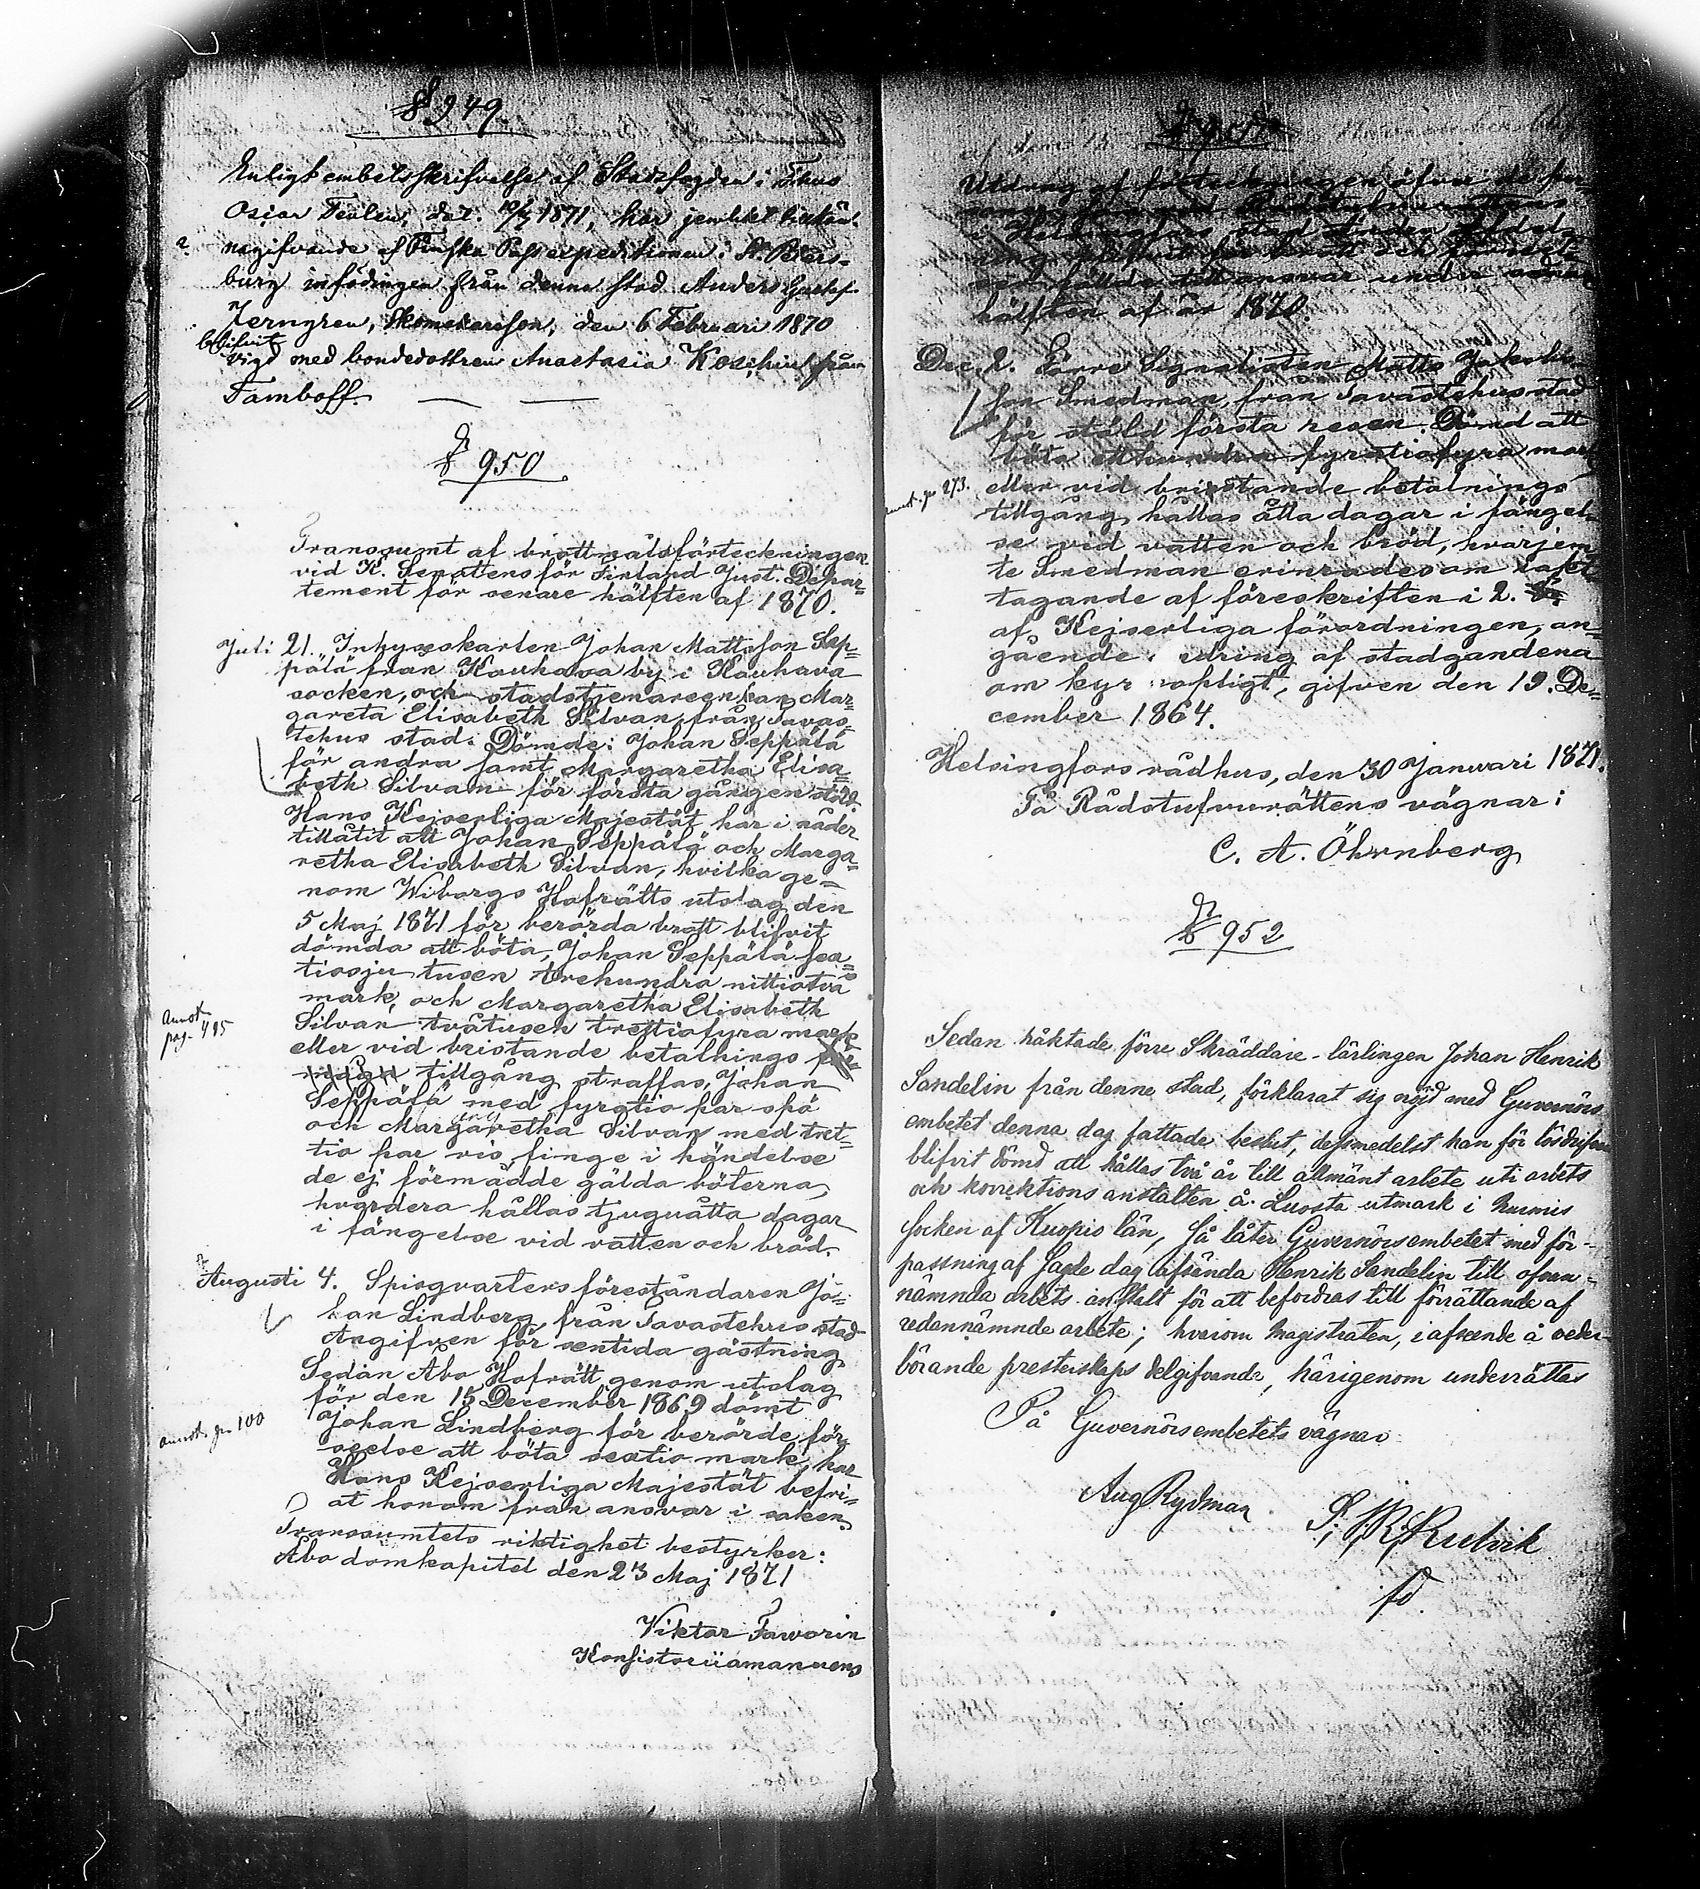 § 949.
Enligt embetsskrifvelse af Stadsfogden i T:hus
Oscar Teolen, dat. 10/5 1871, har jemlikt tillkän-
nagifvande af Finska Passexpeditionen i St. Peters-
burg infödingen från denna stad Anders Gustaf
Jerngren, Skomakareson, den 6 Februari 1870
blifvit
vigd med bondedottren Anastasia Koschin från
Tamboff.
§ 950.
Transsumt af brottmålsförteckningen
vid K. Senattens för Finland Just. Depar-
tement för senare hälften af 1870.
Juli 21. Inhyseskarlen Johan Mattsson Sep-
pälä från Kauhava by i Kauhava
socken, och stadstjenareenkan Mar-
gareta Elisabeth Silvan, från Tavas-
tehus stad. Dömde: Johan Seppälä
för andra samt Margaretha Elisa-
beth Silvan för första gången stöld.
Hans Kejserliga Majestät har i nåder
tillåtit att Johan Seppälä och Marga-
retha Elisabeth Silvan, hvilka ge-
nom Wiborgs Hofrätts utslag den
5 Maj 1871 för berörda brott blifvit
dömda att böta, Johan Seppälä sex-
tiosju tusen trehundra nittiotvå
mark, och Margaretha Elisabeth
Annot. pag. 495
Silvan tvåtusen trettiofyra mark
eller vid bristande betalnings
tillgång straffas, Johan
Seppälä med fyratio par spö
och Margaretha Silvan med tret-
tio par ris, finge i händelse
de ej förmådde gälda böterna,
hvardera hållas tjuguåtta dagar
i fängelse vid vatten och bröd.
Augusti 4. Spisqvartersföreståndaren Jo-
han Lindberg, från Tavastehus stad
Angifven för sentida gästning
Sedan Åbo Hofrätt genom utslag
för den 15 December 1869 dömt
Johan Lindberg för berörde för-
annot. pag. 100
seelse att böta sextio mark, har
Hans Kejserliga Majestät befri-
at honom från ansvar i saken.
Transsumtets riktighet bestyrker:
Åbo domkapitel den 23 Maj 1871
Viktor Faworin
Konsistoriiamanuens
§ 951.
Utdrag af förteckningen öfver de per-
soner, som vid Rådstufvurättens
i Helsingfors stad
hälften af år 1870.
Dec. 2. Förre Signalisten Matts Jakobs-
son Smedman, från Tavastehus stad
för stöld första resan. Dömd att
böta etthundra fyratiofyra mark
annot. pag 273.
eller vid bristande betalnings
tillgång hållas åtta dagar i fängel-
se vid vatten och bröd, hvarjem-
te Smedman erinrades om iakt-
tagande af föreskriften i 2. §.
af Kejserliga förordningen, an-
gående ändring af stadgandena
om kyrkopligt, gifven den 19. De-
cember 1864.
Helsingfors rådhus, den 30 Januari 1871.
På Rådstufvurättens vägnar:
C. A. Öhrnberg
§ 952
Sedan häktade förre Skräddare-lärlingen Johan Henrik
Sandelin från denna stad, förklarat sig nöjd med Guvernörs
embetet denna dag fattade beslut, derigenom han för lösdrifveri
blifvit dömd att hållas två år till allmänt arbete uti arbets
och korrektions anstalten å Luosta utmark i Nurmis
socken af Kuopio län, så låter Guvernörsembetet med för-
passning af sagde dag afsända Henrik Sandelin till ofvan-
nämnda arbets anstalt för att befordras till förrättande af
redannämnde arbete; hvarom Magistraten, i afseende å veder-
börande presterskaps delgifvande, härigenom underrättas
På Guvernörsembetets vägnar
Aug Rydman
fd